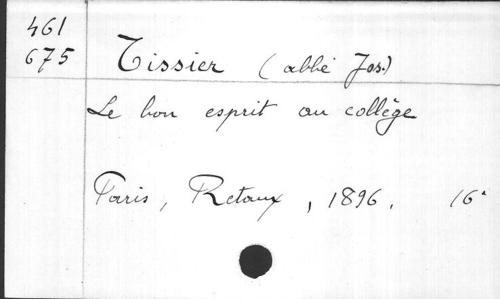 461
675
Tissier (abbé Jos.)
Le bon esprit au collège
Paris, Retaux, 1896. 16°